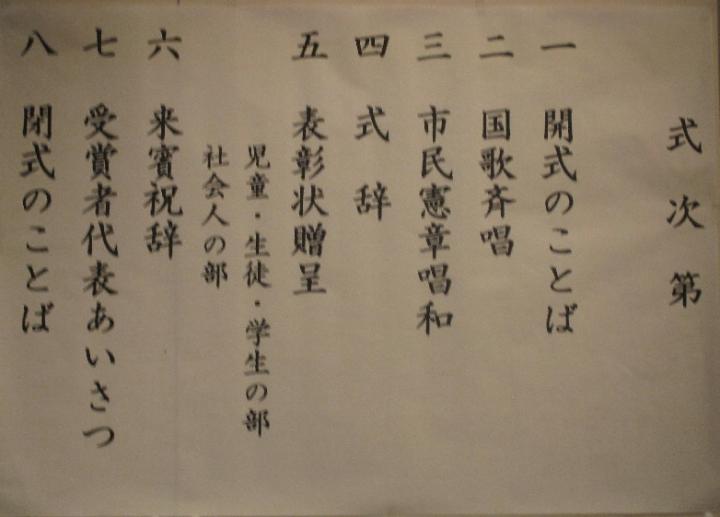 式次第
一 開式のことば
二 国歌斉唱
三 市民憲章唱和
四 式辞
五 表彰状贈呈
児童・生徒・学生の部
社会人の部
六 来賓祝辞
七 受賞者代表あいさつ
八 閉式のことば